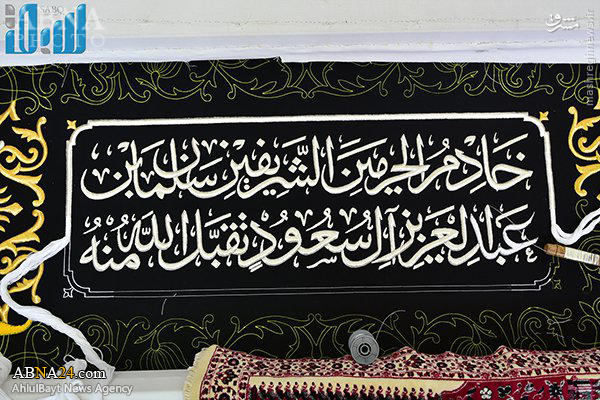 سبق
SABQ
ABNA
PHOTO
مشرق
mashreghnews.ir
خادم الحرمين الشريفين سلمان بن
عبدالعزيز آل سعود تقبل الله منه
ABNA24.com
AhlulBayt News Agency